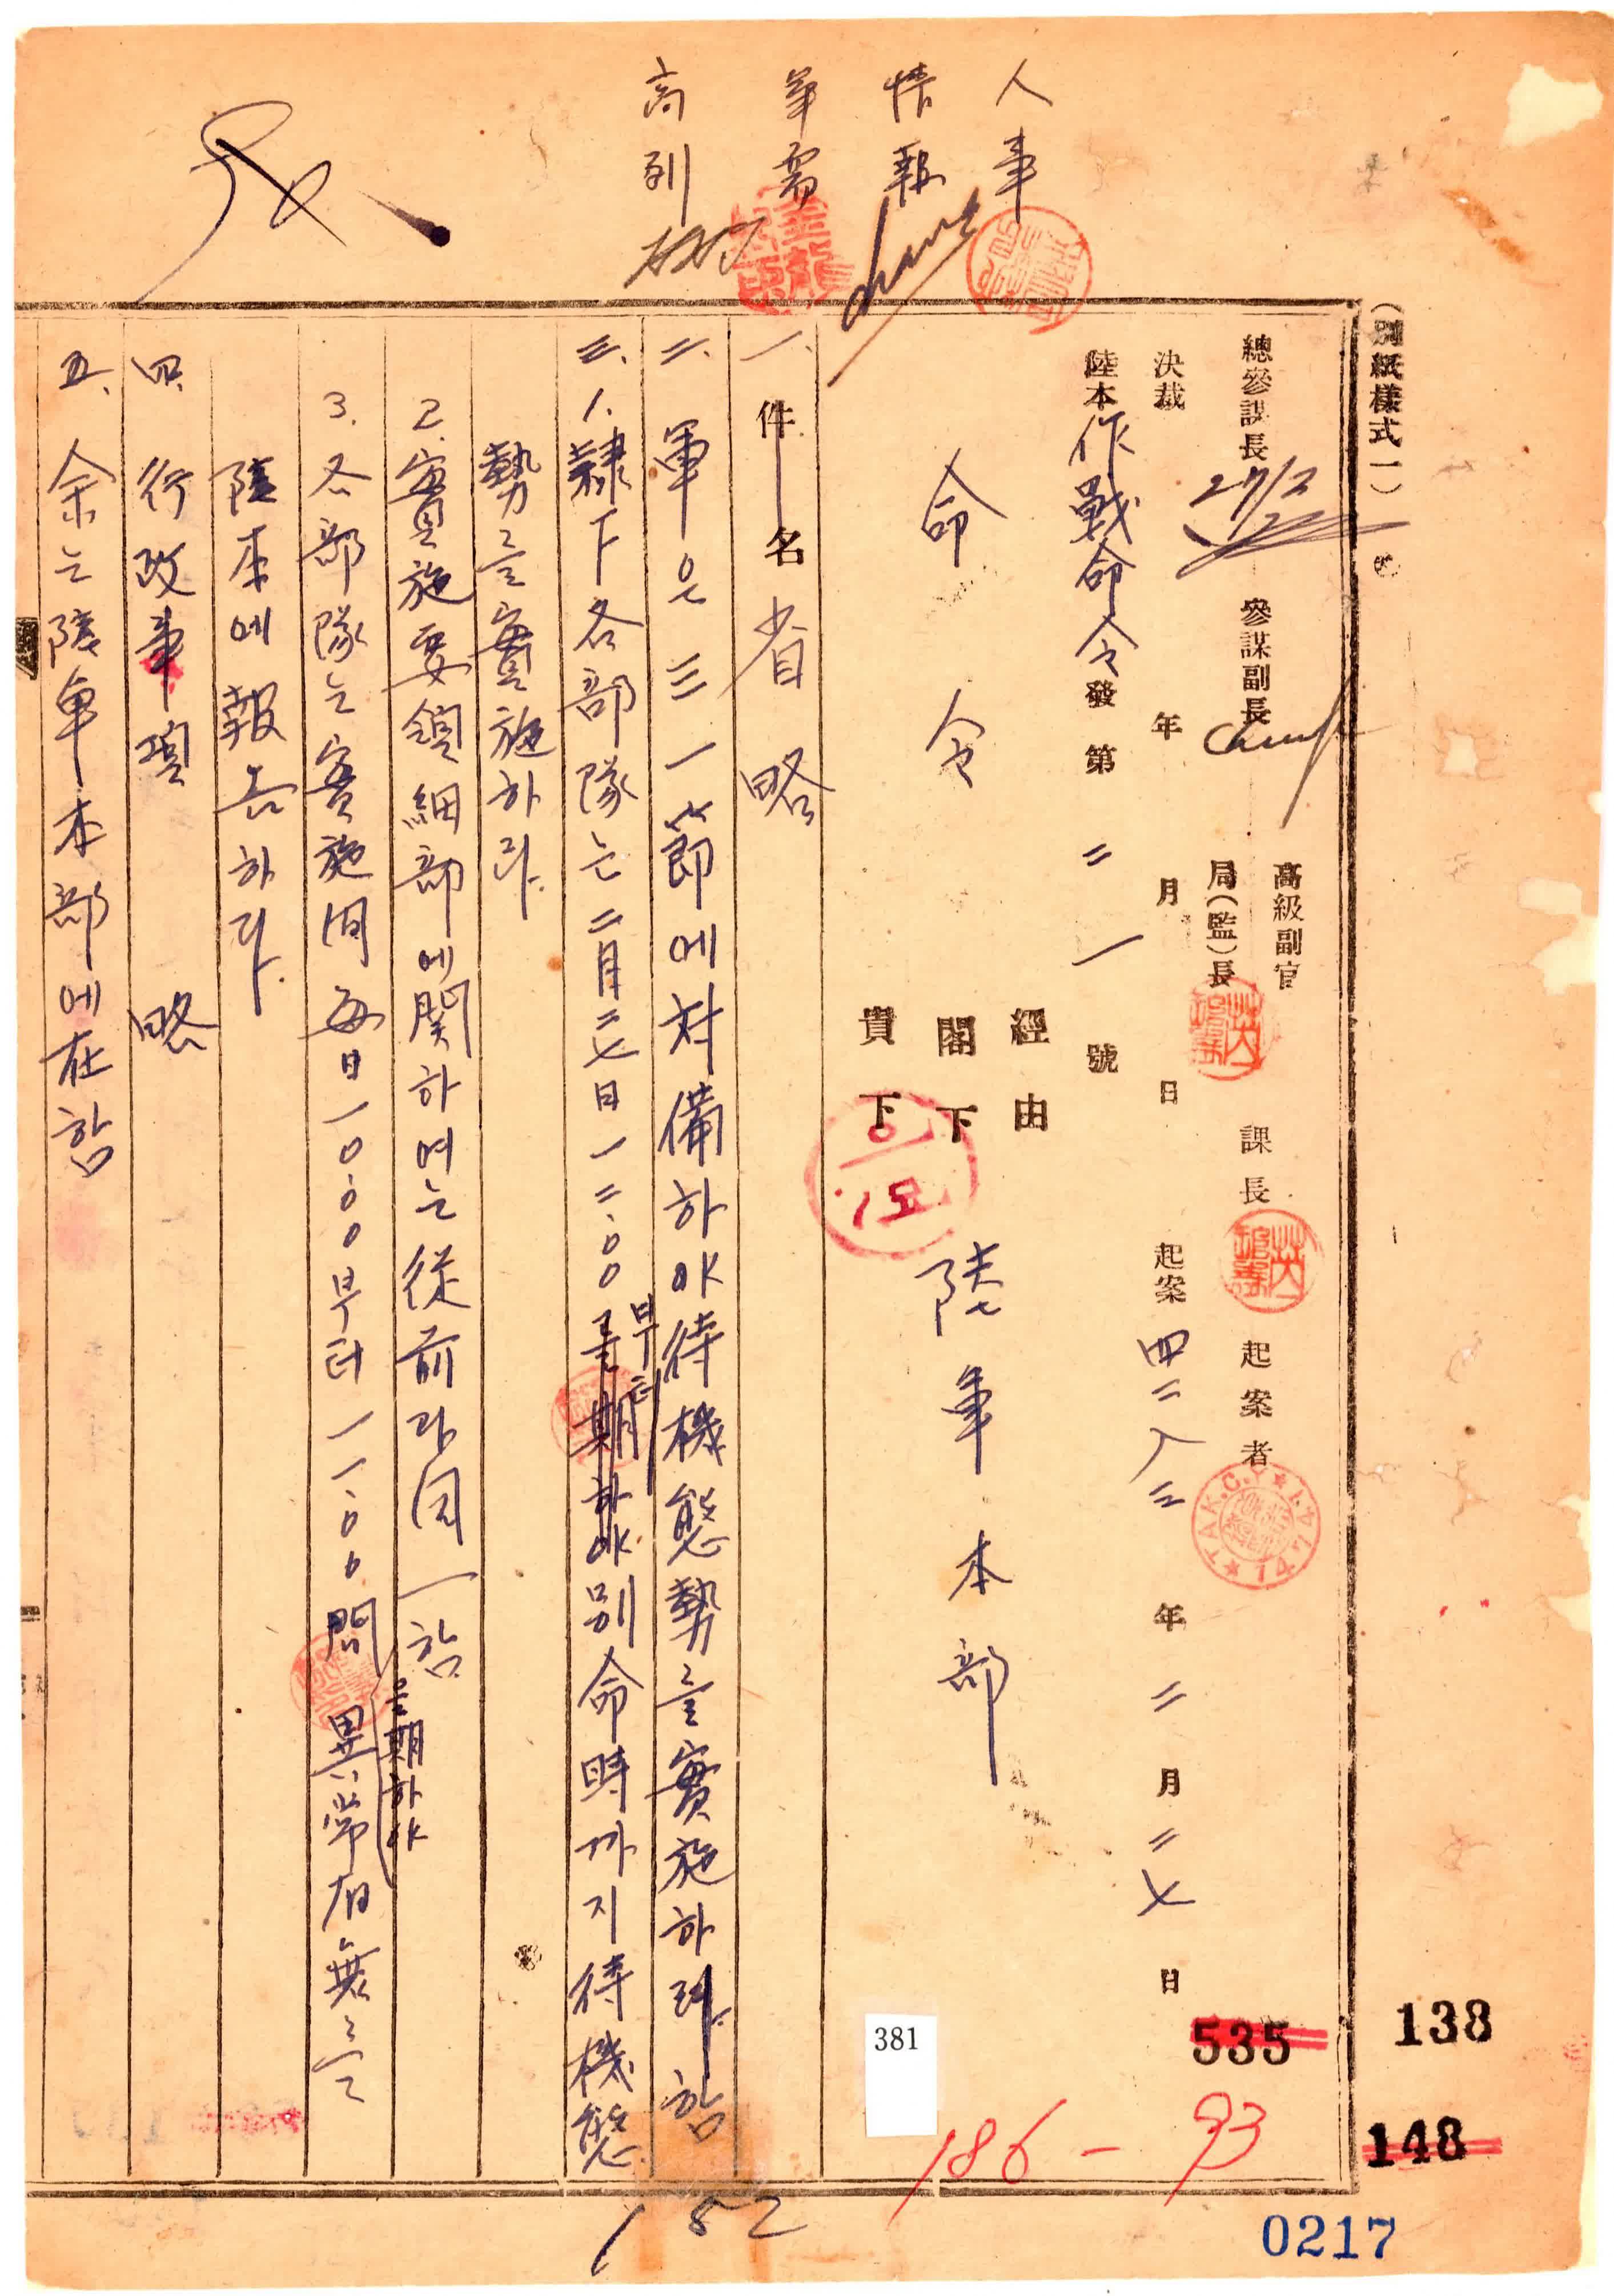 (別紙樣式一)
總參謀長 參謀副長 高級副官 局(監)長 課長 起案者
決裁 年 月 日 起案 四二八三 年 二 月 二七 日
陸本作戰命令發 第 二一 號
命令 陸軍本部
經由
閣下
貴下
人事
情報
軍需
高列
一. 件名 省略
二. 軍은 三一節에 対備하야 待機態勢를 實施하려 함
三. 1. 隷下各部隊는 二月二七日一二:００부터 別命時까지 待機態
勢를 實施하라.
2. 實施要領細部에 関하여는 從前과 同一함
3. 各部隊는 實施間 每日一０:００부터 一一:００間 을期하야 異常有無를
陸本에 報告하라.
四. 行政事項 略
五. 余는 陸軍本部에 在함
TAK.C.Y
381
535
138
148
186-93
182
0217